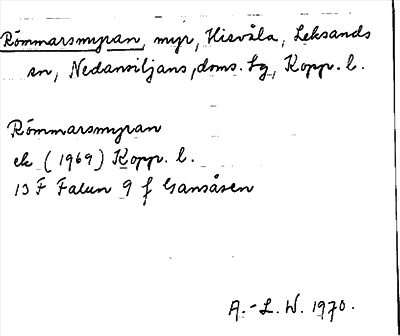 Römmarsmyran, myr, Hisvåla, Leksands
sn, Nedansiljans, doms. lg, Kopp. l.
Römmarsmyran
ek (1969) Kopp. l.
13 F Falun 9 f Gansåsen
A.-L. W. 1970.